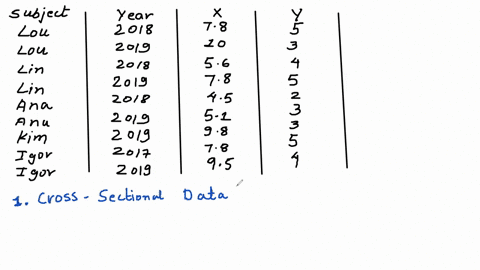 Subject Year X Y
Lou 2018 7.8 5
Lou 2019 10 3
Lin 2018 5.6 4
Lin 2019 7.8 5
Ana 2018 4.5 2
Ana 2019 5.1 3
Kim 2019 9.8 3
Igor 2017 7.8 5
Igor 2019 9.5 4
1. Cross-Sectional Data